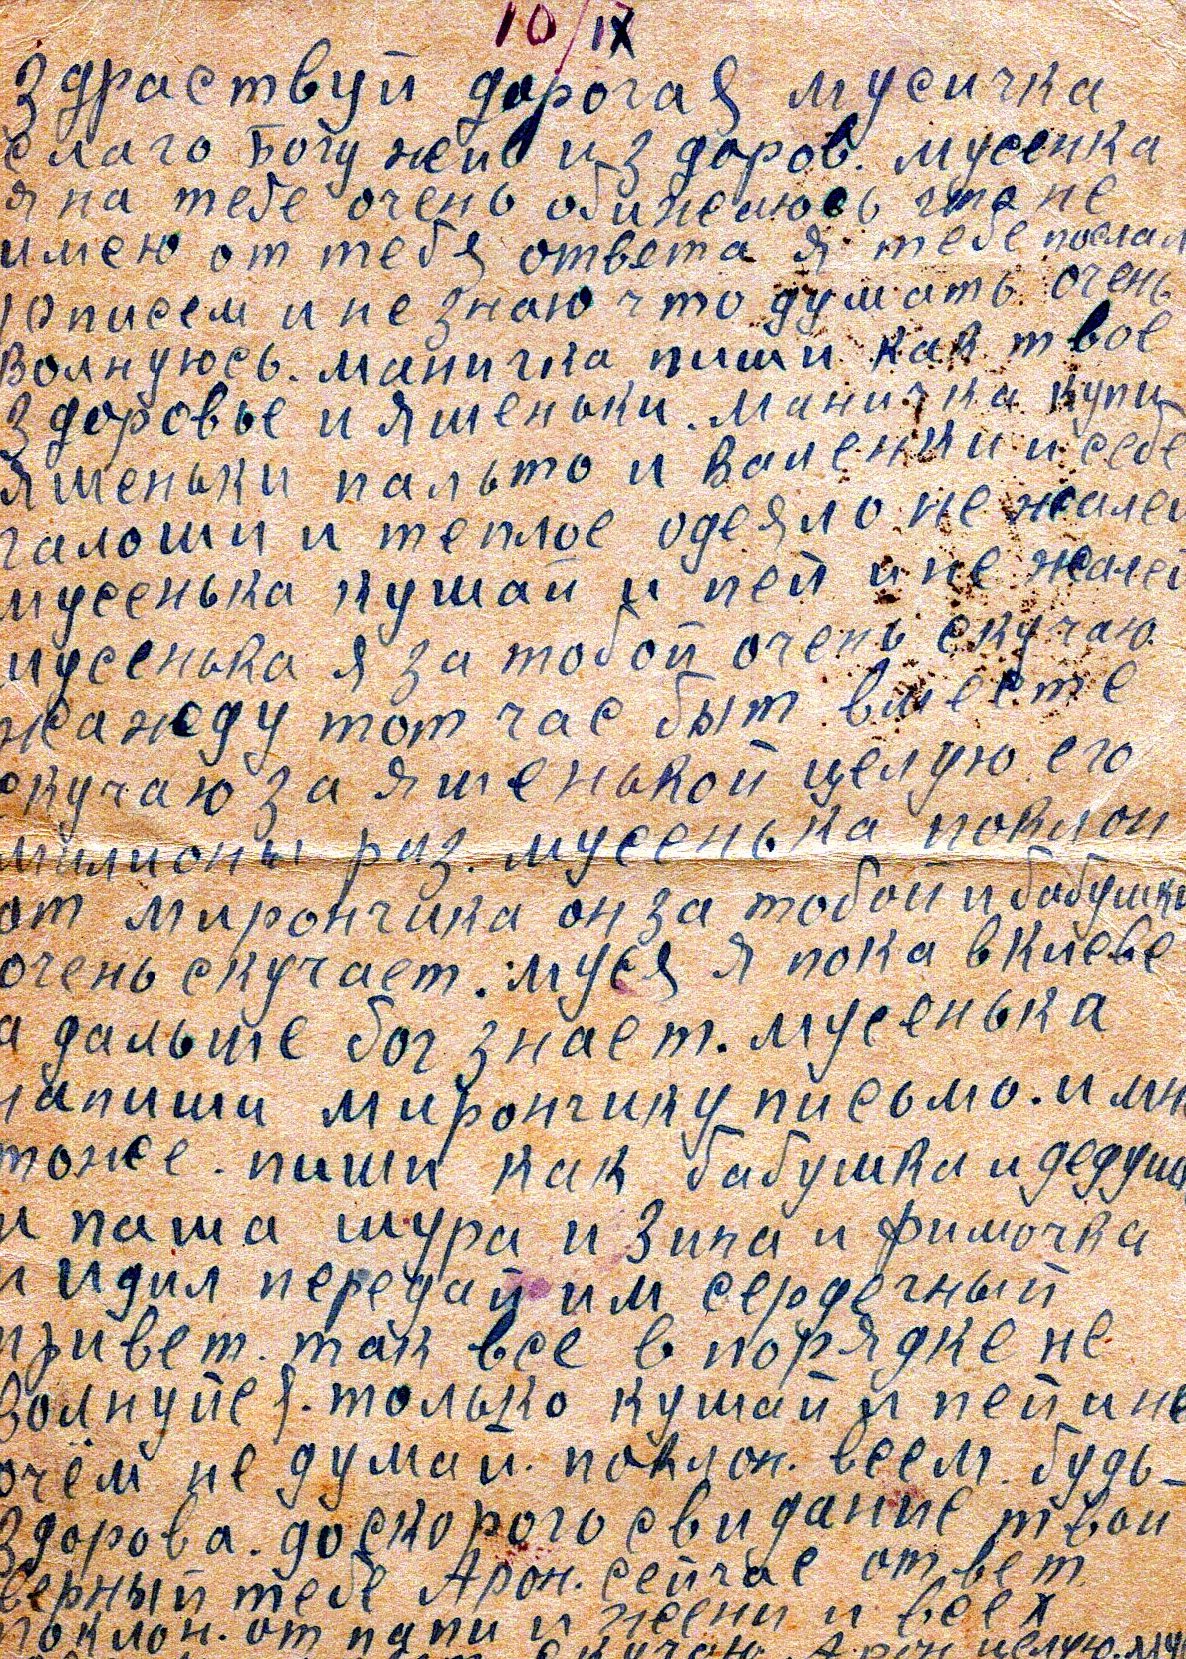 10/IX
Здраствуй дорогая мусичка
слаго Богу жив и здоров. мусенка
я на тебе очень обижаюсь что не
имею от тебя ответа я тебе послал
10 писем и не знаю что думать очень
волнуюсь. маничка пиши как твое
здоровье и яшеньки. маничка купи
яшеньки пальто и валенки и себе
галоши и теплое одеяло не жалей
мусенька кушай и пей и не жалей
мусенька я за тобой очень скучаю
жажду тот час быт вместе
скучаю за яшенькой целую его
милионы раз. мусенька поклон
от мирончика он за тобой и бабушки
очень скучает. муся я пока в киеве
а дальше бог знает. мусенька
напиши мирончику письмо. и мне
тоже. пиши как бабушка и дедушка
и паша шура и зина и фимочка
и идил передай им сердечный
привет. так все в порядке не
волнуйся. только кушай и пей и не
очём не думай. поклон. всем. будь
здорова. до скорого свидание твой
верный тебе Арон. сейчас ответ
поклон. от папи и жени и всех
скучаю Арон целую.